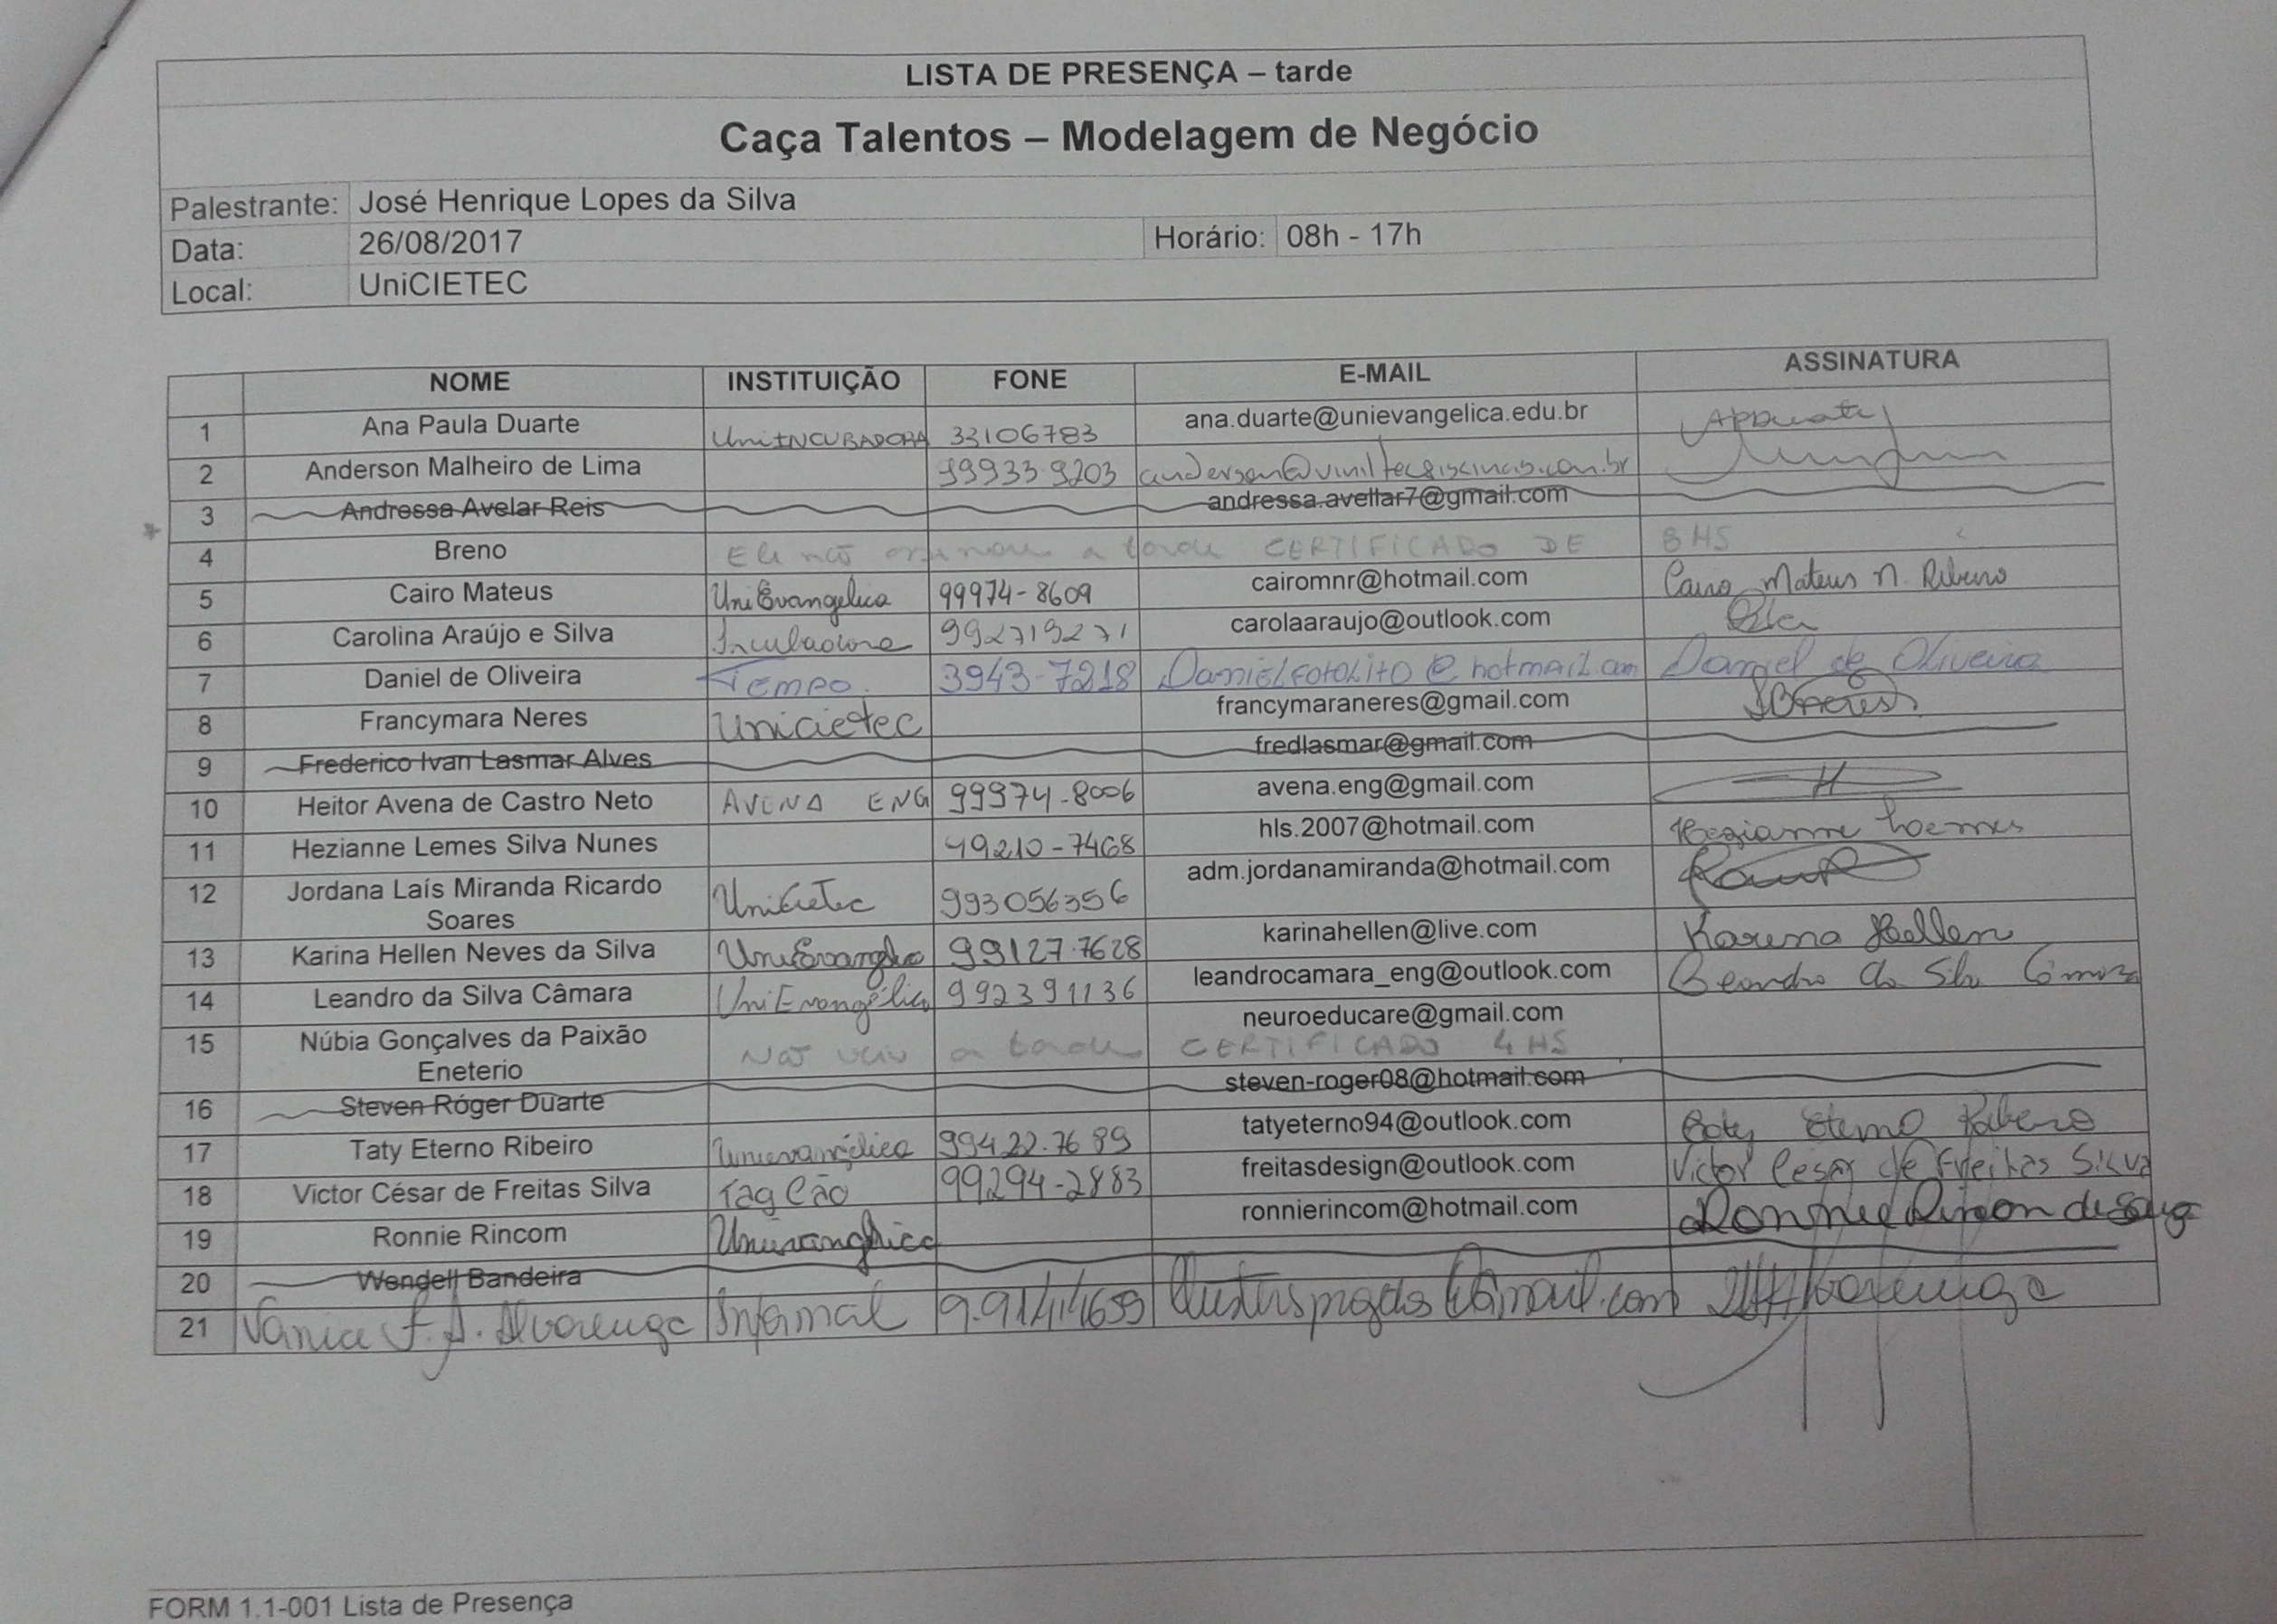 LISTA DE PRESENÇA – tarde
Caça Talentos – Modelagem de Negócio
Palestrante: José Henrique Lopes da Silva
Data: 26/08/2017 Horário: 08h - 17h
Local: UniCIETEC
NOME INSTITUIÇÃO FONE E-MAIL ASSINATURA
1 Ana Paula Duarte UniINCUBADORA 33106783 ana.duarte@unievangelica.edu.br APDuarte
2 Anderson Malheiro de Lima 99933-9203
3 Andressa Avelar Reis andressa.avellar7@gmail.com
4 Breno Ele não assinou a tarde CERTIFICADO DE 8 HS
5 Cairo Mateus UniEvangelica 99974-8609 cairomnr@hotmail.com Cairo Mateus N. Ribeiro
6 Carolina Araújo e Silva Incubadora 992719271 carolaaraujo@outlook.com
7 Daniel de Oliveira Tempo. 3943-7218 DanielFotolito@hotmail.com Daniel de Oliveira
8 Francymara Neres Unicietec francymaraneres@gmail.com
9 Frederico Ivan Lasmar Alves fredlasmar@gmail.com
10 Heitor Avena de Castro Neto AVENA ENG 99974-8006 avena.eng@gmail.com H
11 Hezianne Lemes Silva Nunes 99210-7468 hls.2007@hotmail.com Hezianne Lemes
12 Jordana Laís Miranda Ricardo UniCieTec 993056356 adm.jordanamiranda@hotmail.com
Soares
13 Karina Hellen Neves da Silva UniEvangelica 99127.7628 karinahellen@live.com Karina Hellen
14 Leandro da Silva Câmara UniEvangélica 992391136 leandrocamara_eng@outlook.com Leandro da Silva Câmara
15 Núbia Gonçalves da Paixão neuroeducare@gmail.com
Eneterio Não veio a tarde CERTIFICADO 4 HS
16 Steven Róger Duarte steven-roger08@hotmail.com
17 Taty Eterno Ribeiro Unievangélica 99422.7689 tatyeterno94@outlook.com Taty Eterno Ribeiro
18 Victor César de Freitas Silva Tag Cão 99294-2883 freitasdesign@outlook.com Victor Cesar de Freitas Silva
19 Ronnie Rincom Unievangélica ronnierincom@hotmail.com Ronnie Rincon de Souza
20 Wendell Bandeira
21 Vania F. A. Alvarenga Informal
FORM 1.1-001 Lista de Presença